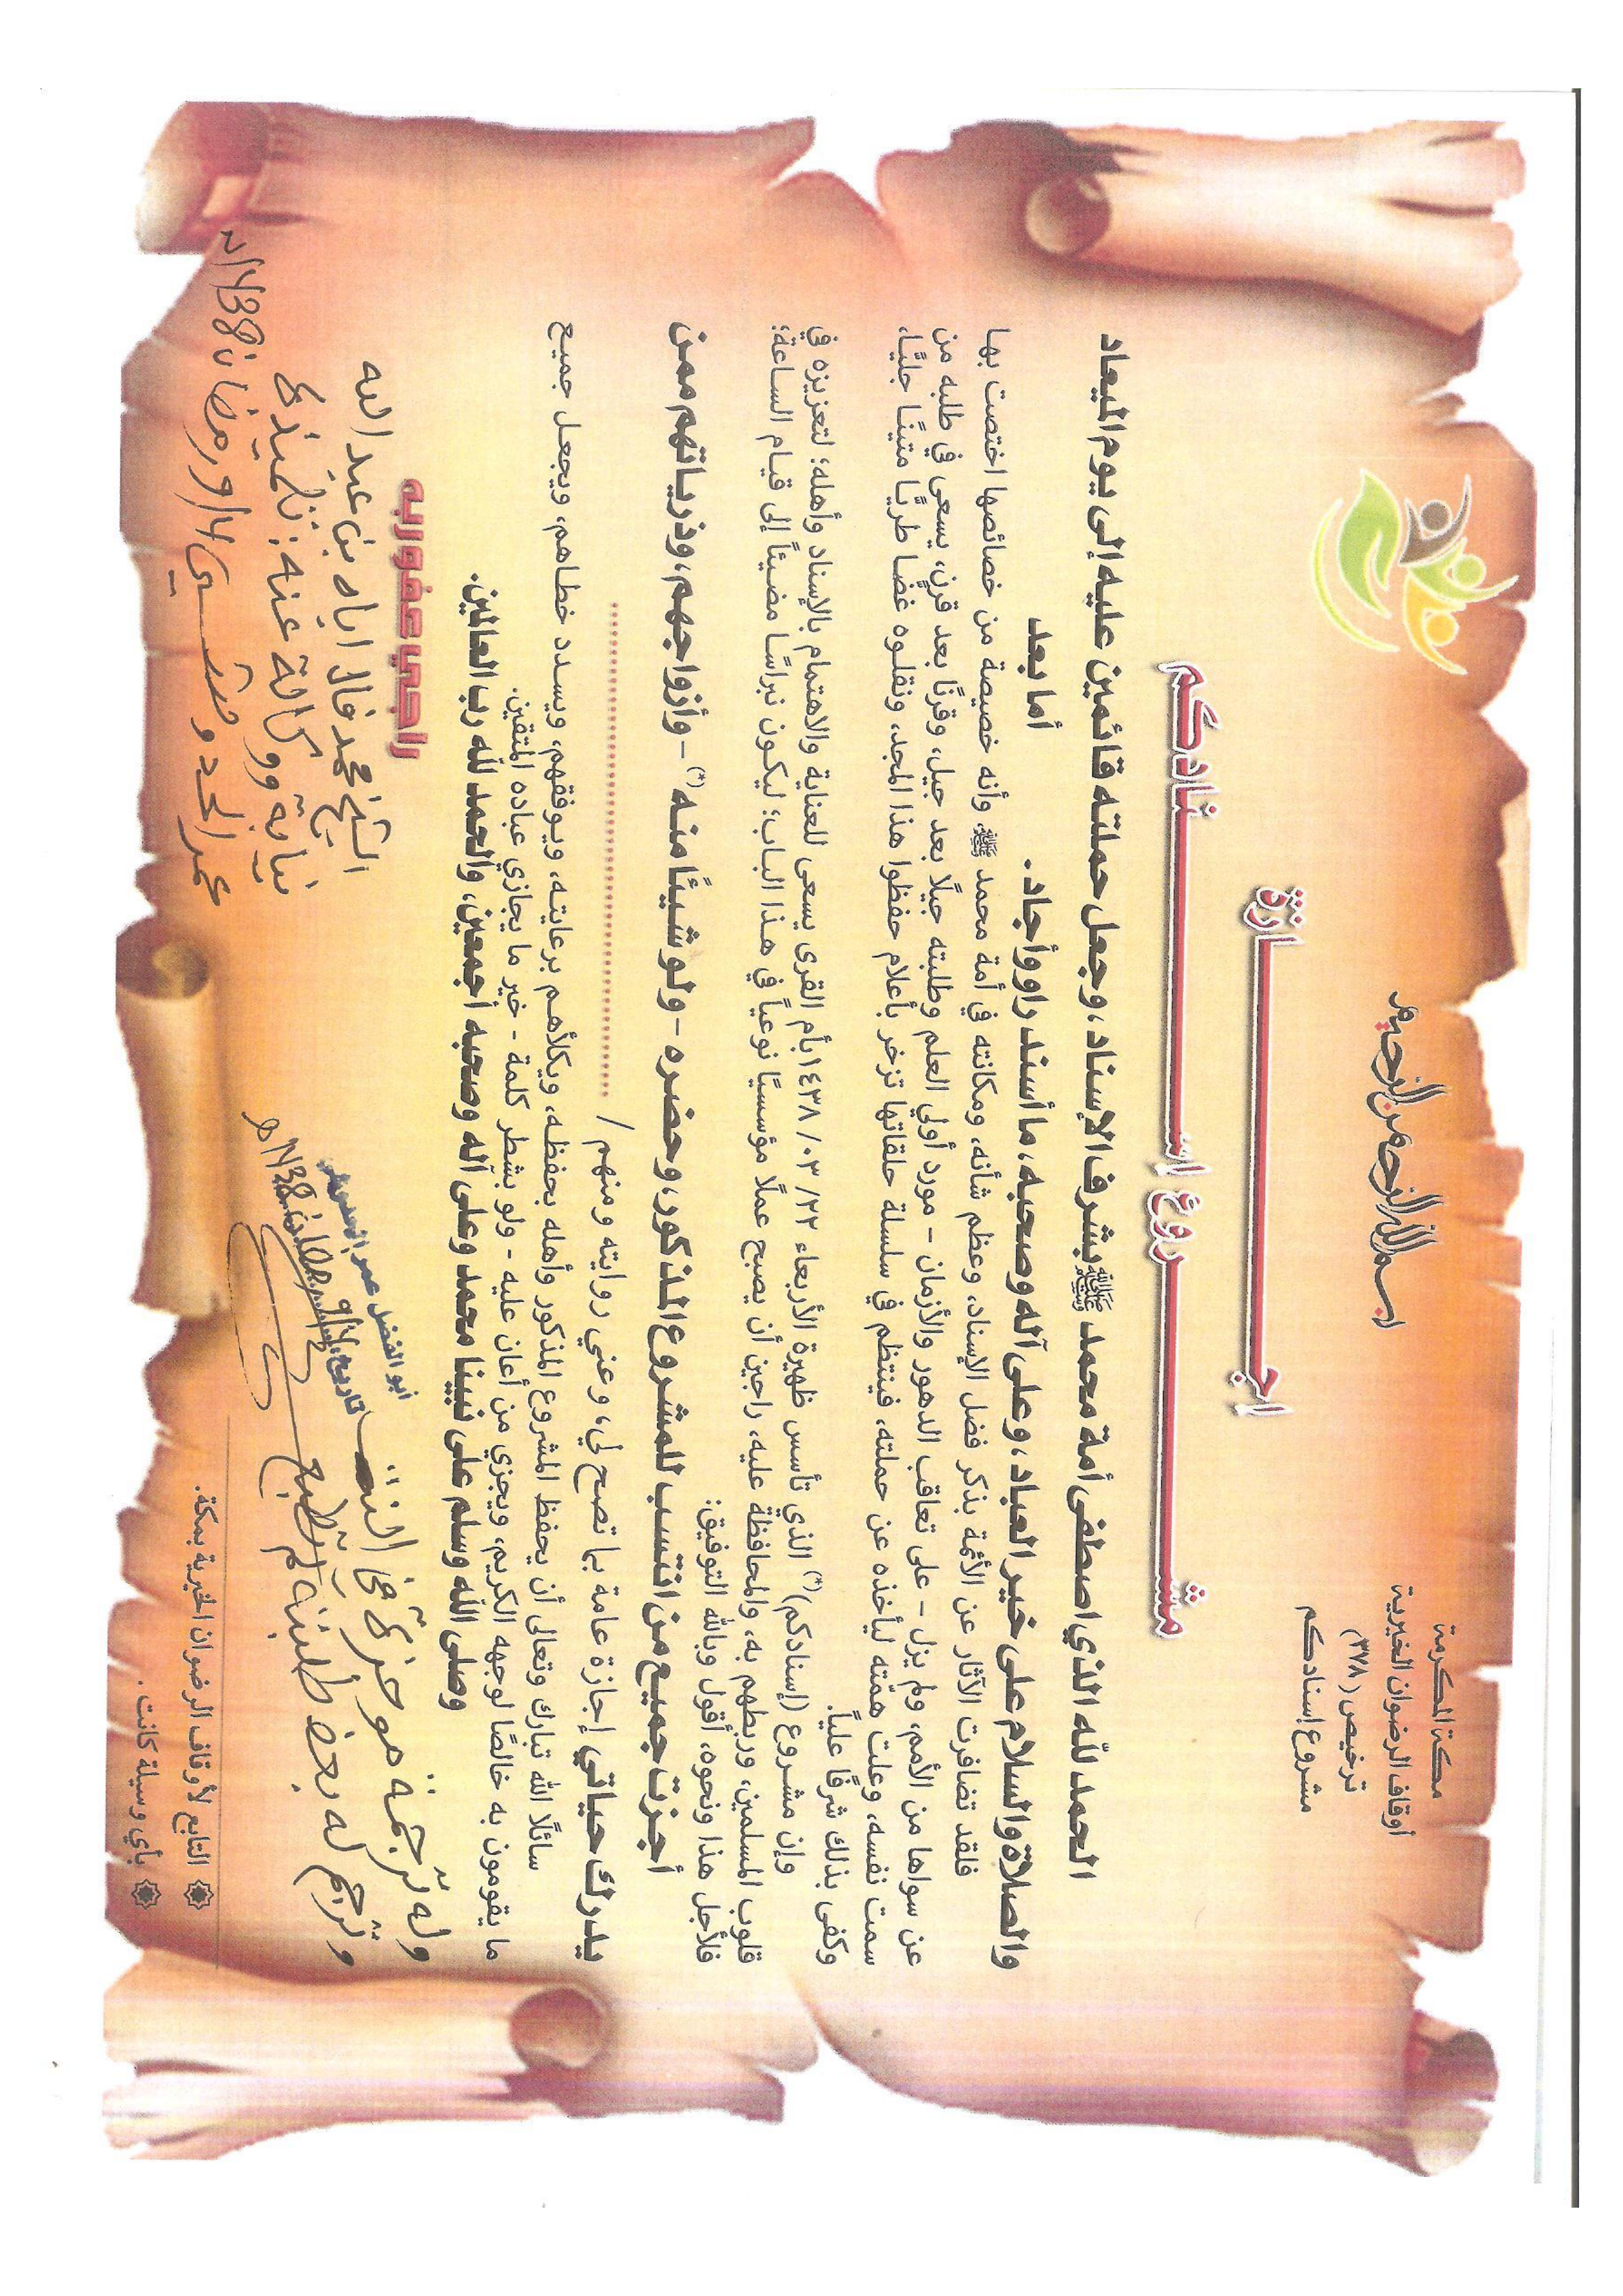 بسم الله الرحمن الرحيم
مكة المكرمة
أوقاف الرضوان الخيرية
ترخيص (٣٧٨)
مشروع إسنادكم
إجــازة
مشــروع إسنــادكم
الحمد لله الذي اصطفى أمة محمد ﷺ بشرف الإسناد، وجعل حملته قائمين عليه إلى يوم الميعاد
والصلاة والسلام على خير العباد، وعلى آله وصحبه، ما أسند راو وأجاد. أما بعد
فلقد تضافرت الآثار عن الأئمة بذكر فضل الإسناد، وعظم شأنه، ومكانته في أمة محمد ﷺ، وأنه خصيصة من خصائصها اختصت بها
عن سواها من الأمم، ولم يزل - على تعاقب الدهور والأزمان - مورد أولي العلم وطلبته جيلًا بعد جيل، وقرنًا بعد قرن، يسعى في طلبه من
سمت نفسه، وعلت همته ليأخذه عن حملته، فينتظم في سلسلة حلقاتها تزخر بأعلام حفظوا هذا المجد، ونقلوه غضا طريًّا متينًا جليًّا،
وكفى بذلك شرفًا عليًا.
وإن مشروع (إسنادكم)(*) الذي تأسس ظهيرة الأربعاء ٢٢/ ٠٣/ ١٤٣٨ بأم القرى يسعى للعناية والاهتمام بالإسناد وأهله؛ لتعزيزه في
قلوب المسلمين، وربطهم به، والمحافظة عليه، راجين أن يصبح عملًا مؤسسيًا نوعياً في هذا الباب؛ ليكون نبراسًا مضيئاً إلى قيام الساعة؛
فلأجل هذا ونحوه، أقول وبالله التوفيق:
أجزت جميع من انتسب للمشروع المذكور، وحضره - ولو شيئًا منه(*) - وأزواجهم، وذرياتهم ممن
يدرك حياتي إجازة عامة بما تصح لي، وعني روايته ومنهم / ..............................
سائلًا الله تبارك وتعالى أن يحفظ المشروع المذكور وأهله بحفظه، ويكلأهم برعايته، ويوفقهم، ويسدد خطاهم، ويجعل جميع
ما يقومون به خالصًا لوجهه الكريم، ويجزي من أعان عليه - ولو بشطر كلمة - خير ما يجازي عباده المتقين.
وصلى الله وسلم على نبينا محمد وعلى آله وصحبه أجمعين، والحمد لله رب العالمين.
راجي عفو ربه
الشيخ محمد فال اباه بن عبد الله
نيابة ووكالة عنه: تلميذه
وله ترجمة موجزة في النت
وترجم له بعض طلبته لم تطبع
أبو الفضل عمر الحدوشي
التابع لأوقاف الرضوان الخيرية بمكة.
بأي وسيلة كانت.